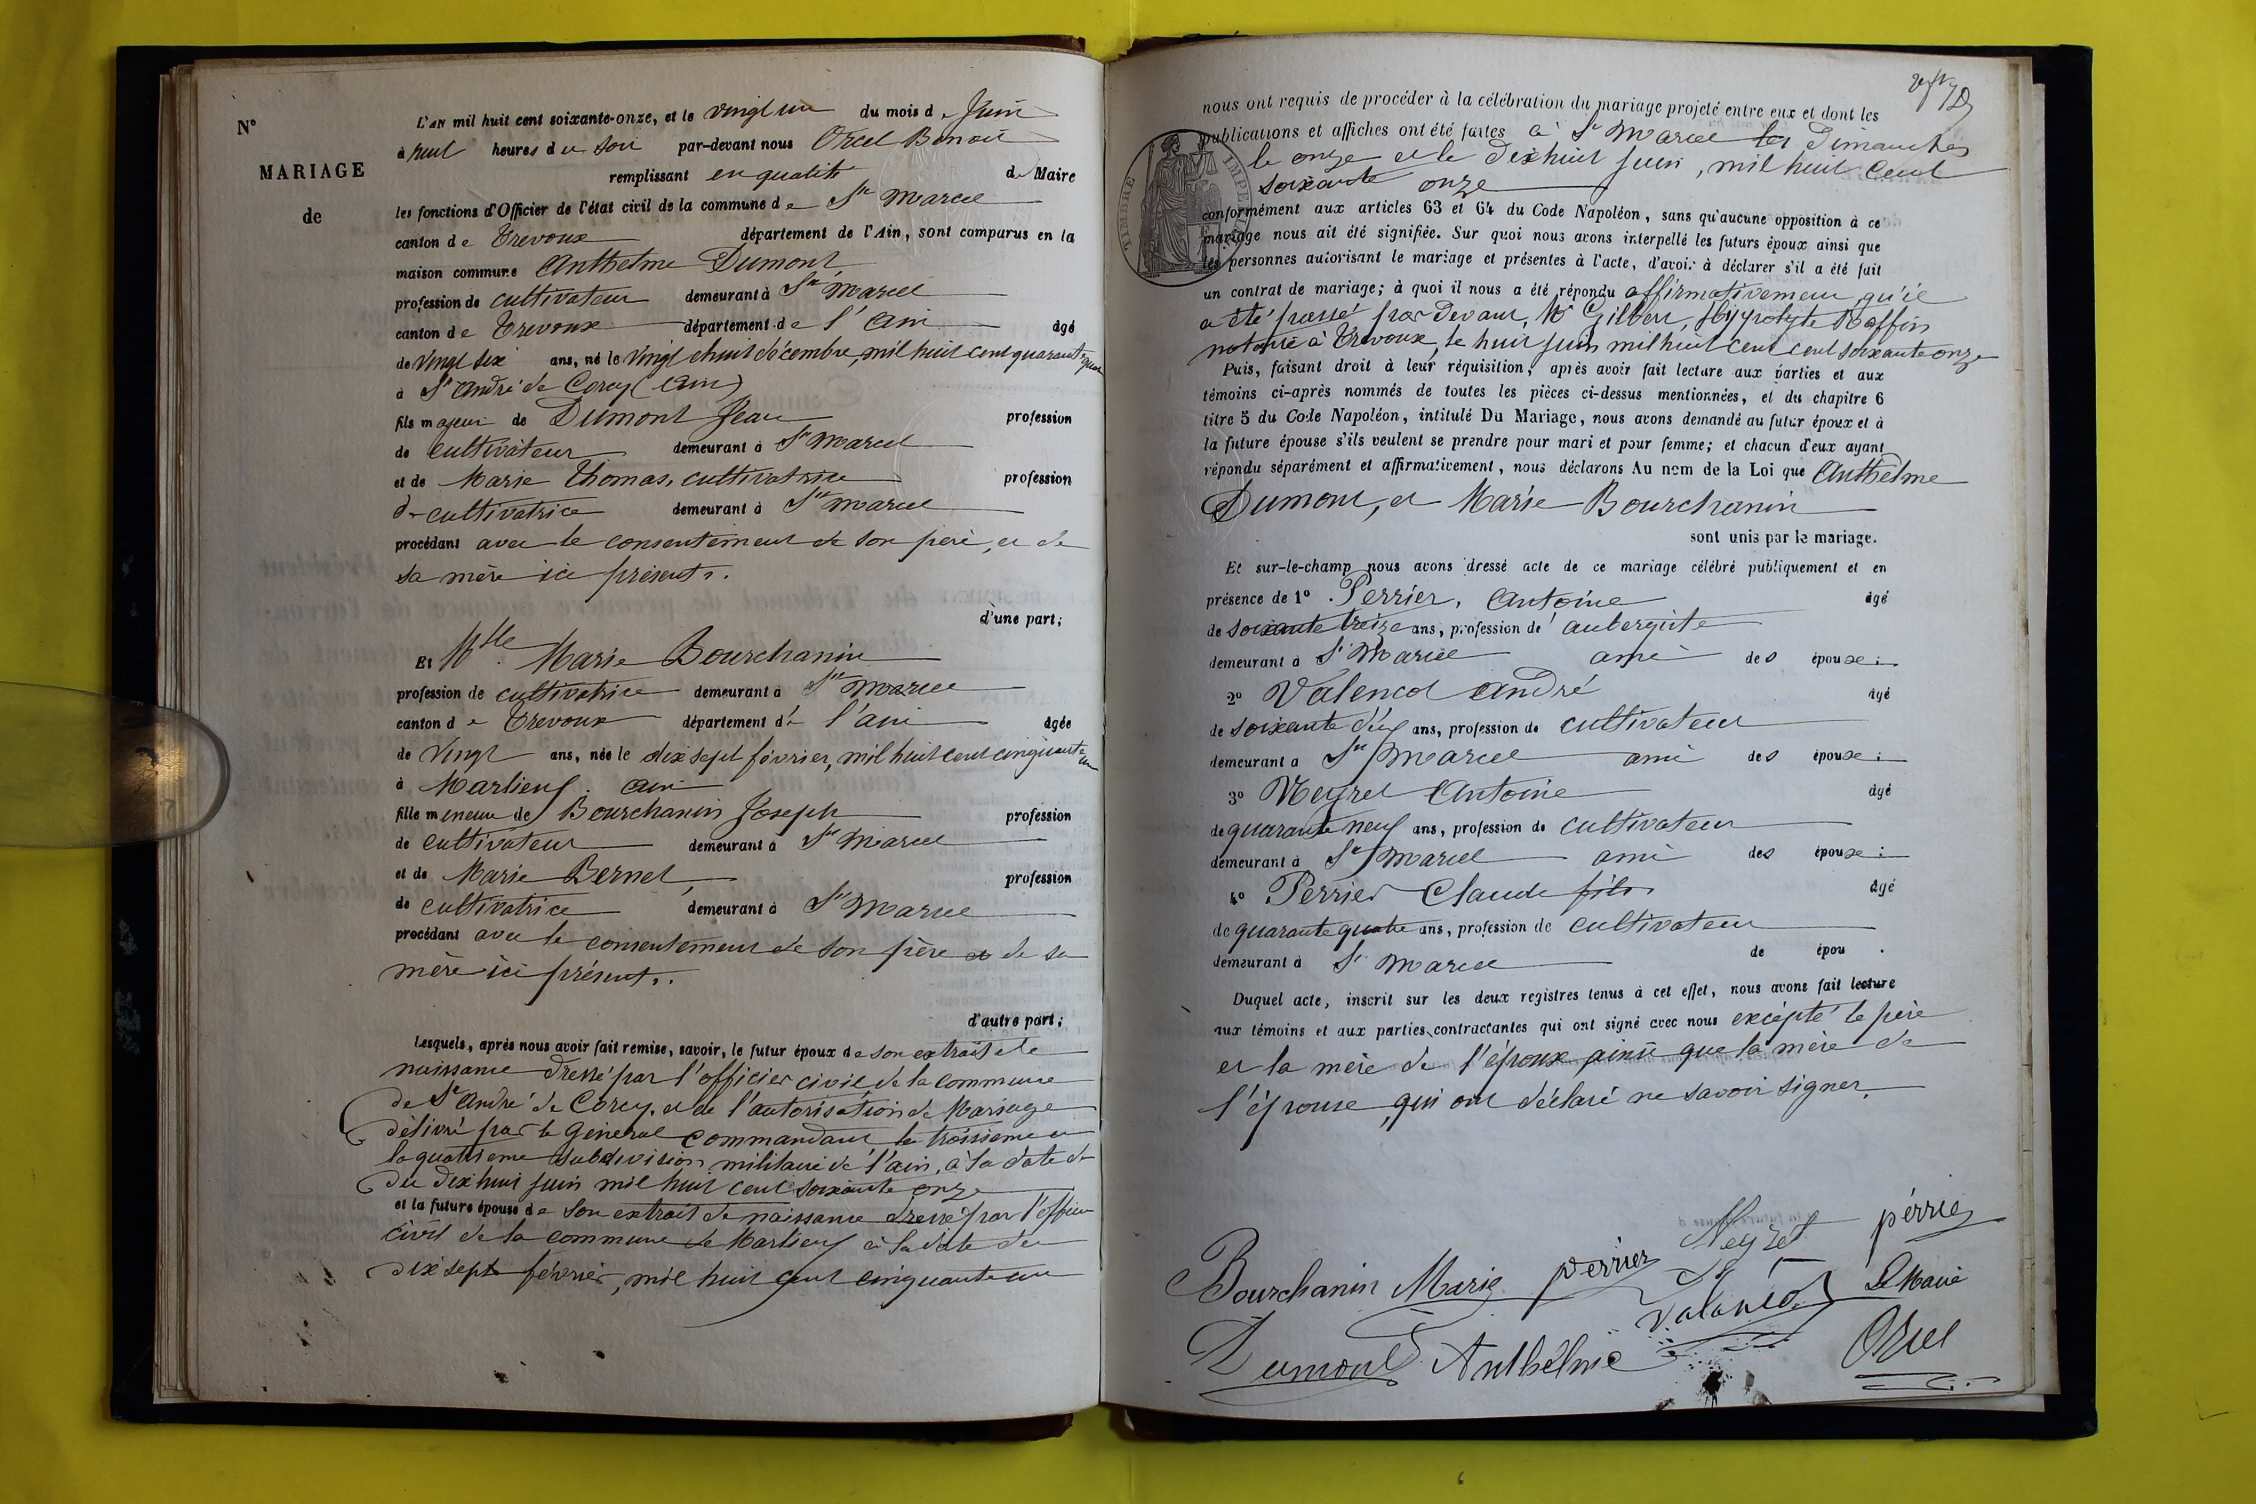 N°
MARIAGE
de
L'AN mil huit cent soixante-onze, et le vingt un du mois de Juin
à huit heures du soir par-devant nous Orcel Benoit
remplissant en qualité de Maire
les fonctions d'Officier de l'état civil de la commune de St Marcel
canton de Trevoux département de l'Ain, sont comparus en la
maison commune Anthelme Dumont
profession de cultivateur demeurant à St Marcel
canton de Trevoux département de l'Ain âgé
de vingt six ans, né le vingt huit décembre, mil huit cent quarante quatre
à St André de Corcy (Ain)
fils majeur de Dumont Jean profession
de cultivateur demeurant à St Marcel
et de Marie Thomas, cultivatrice profession
de cultivatrice demeurant à St Marcel
procédant avec le consentement de son père, et de
sa mère ici présents.
d'une part;
Et Mlle Marie Bourchanin
profession de cultivatrice demeurant à St Marcel
canton de Trevoux département de l'ain âgée
de vingt ans, née le dix sept février, mil huit cent cinquante un
à Marlieux Ain
fille mineure de Bourchanin Joseph profession
de cultivateur demeurant à St Marcel
et de Marie Bernet, profession
de cultivatrice demeurant à St Marcel
procédant avec le consentement de son père et de sa
mère ici présents.
d'autre part;
Lesquels, après nous avoir fait remise, savoir, le futur époux de son extrait de
naissance dressé par l'officier civil de la commune
de St André de Corcy, et de l'autorisation de Mariage
délivré par le Général commandant la troisieme et
la quatrieme subdivision militaire de l'ain, à la date de
du dix huit juin mil huit cent soixante onze
et la future épouse de son extrait de naissance dressé par l'officier
civil de la commune de Marlieux à la date du
dix sept février, mil huit cent cinquante un
nous ont requis de procéder à la célébration du mariage projeté entre eux et dont les
publications et affiches ont été faites à St Marcel les dimanches
le onze et le dix huit juin, mil huit cent
soixante onze
TIMBRE IMPERIAL
conformément aux articles 63 et 64 du Code Napoléon, sans qu'aucune opposition à ce
mariage nous ait été signifiée. Sur quoi nous avons interpellé les futurs époux ainsi que
les personnes autorisant le mariage et présentes à l'acte, d'avoir à déclarer s'il a été fait
un contrat de mariage; à quoi il nous a été répondu affirmativement qu'il
a été passé par devant, Me Gilbert, Hyppolyte Raffin
notaire à Trevoux, le huit juin mil huit cent cent soixante onze
Puis, faisant droit à leur réquisition, après avoir fait lecture aux parties et aux
témoins ci-après nommés de toutes les pièces ci-dessus mentionnées, et du chapitre 6
titre 5 du Code Napoléon, intitulé Du Mariage, nous avons demandé au futur époux et à
la future épouse s'ils veulent se prendre pour mari et pour femme; et chacun d'eux ayant
répondu séparément et affirmativement, nous déclarons Au nom de la Loi que Anthelme
Dumont, et Marie Bourchanin
sont unis par le mariage.
Et sur-le-champ nous avons dressé acte de ce mariage célébré publiquement et en
présence de 1° Perrier, Antoine âgé
de soixante treize ans, profession de aubergiste
demeurant à St Marcel ami des épouse;
2° Valencot André âgé
de soixante dix ans, profession de cultivateur
demeurant à St Marcel ami des épouse;
3° Neyret Antoine âgé
de quarante neuf ans, profession de cultivateur
demeurant à St Marcel ami des épouse;
4° Perrier Claude fils âgé
de quarante quatre ans, profession de cultivateur
demeurant à St Marcel de épou .
Duquel acte, inscrit sur les deux registres tenus à cet effet, nous avons fait lecture
aux témoins et aux parties contractantes qui ont signé avec nous excepté le père
et la mère de l'époux ainsi que la mère de
l'épouse, qui ont déclaré ne savoir signer.
Bourchanin Marie perrier Neyret perrier
Valancot Le Maire
Dumont Anthelme Orcel